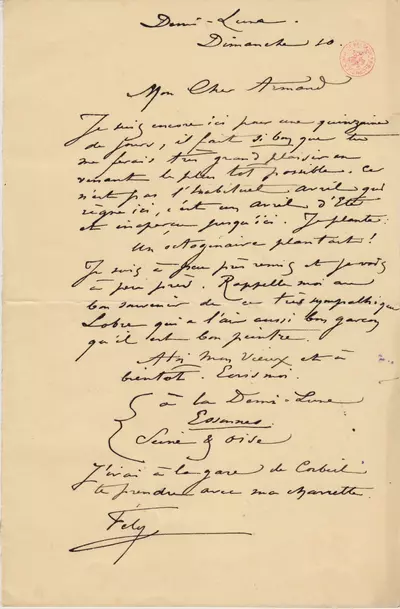 Demi-Lune.
Dimanche 10.
Mon Cher Armand
Je suis encore ici pour une quinzaine
de jours, il fait si bon que tu
me ferais très grand plaisir en
venant le plus tot possible. Ce
n'est pas l'habituel avril qui
règne ici, c'est un avril d'Eté
et inaperçu jusqu'ici. Je plante:
Un octogénaire plantait!
Je suis à peu près remis et je vois
à peu près. Rappelle moi au
bon souvenir de ce très sympathique
Lobre qui a l'air aussi bon garçon
qu'il est bon peintre.
A toi mon vieux et à
bientot. Ecris moi.
à la Demi-Lune
Essonnes
Seine & Oise
J'irai à la gare de Corbeil
te prendre avec ma charrette.
Fély